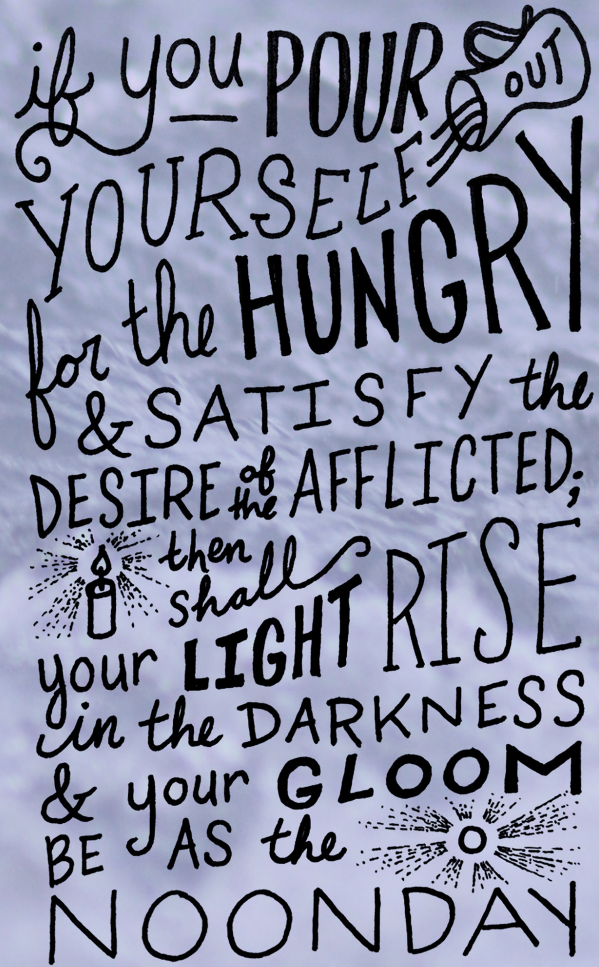 if you POUR OUT
YOURSELF
for the HUNGRY
& SATISFY the
DESIRE of the AFFLICTED;
then shall
your LIGHT RISE
in the DARKNESS
& your GLOOM
BE AS the
NOONDAY